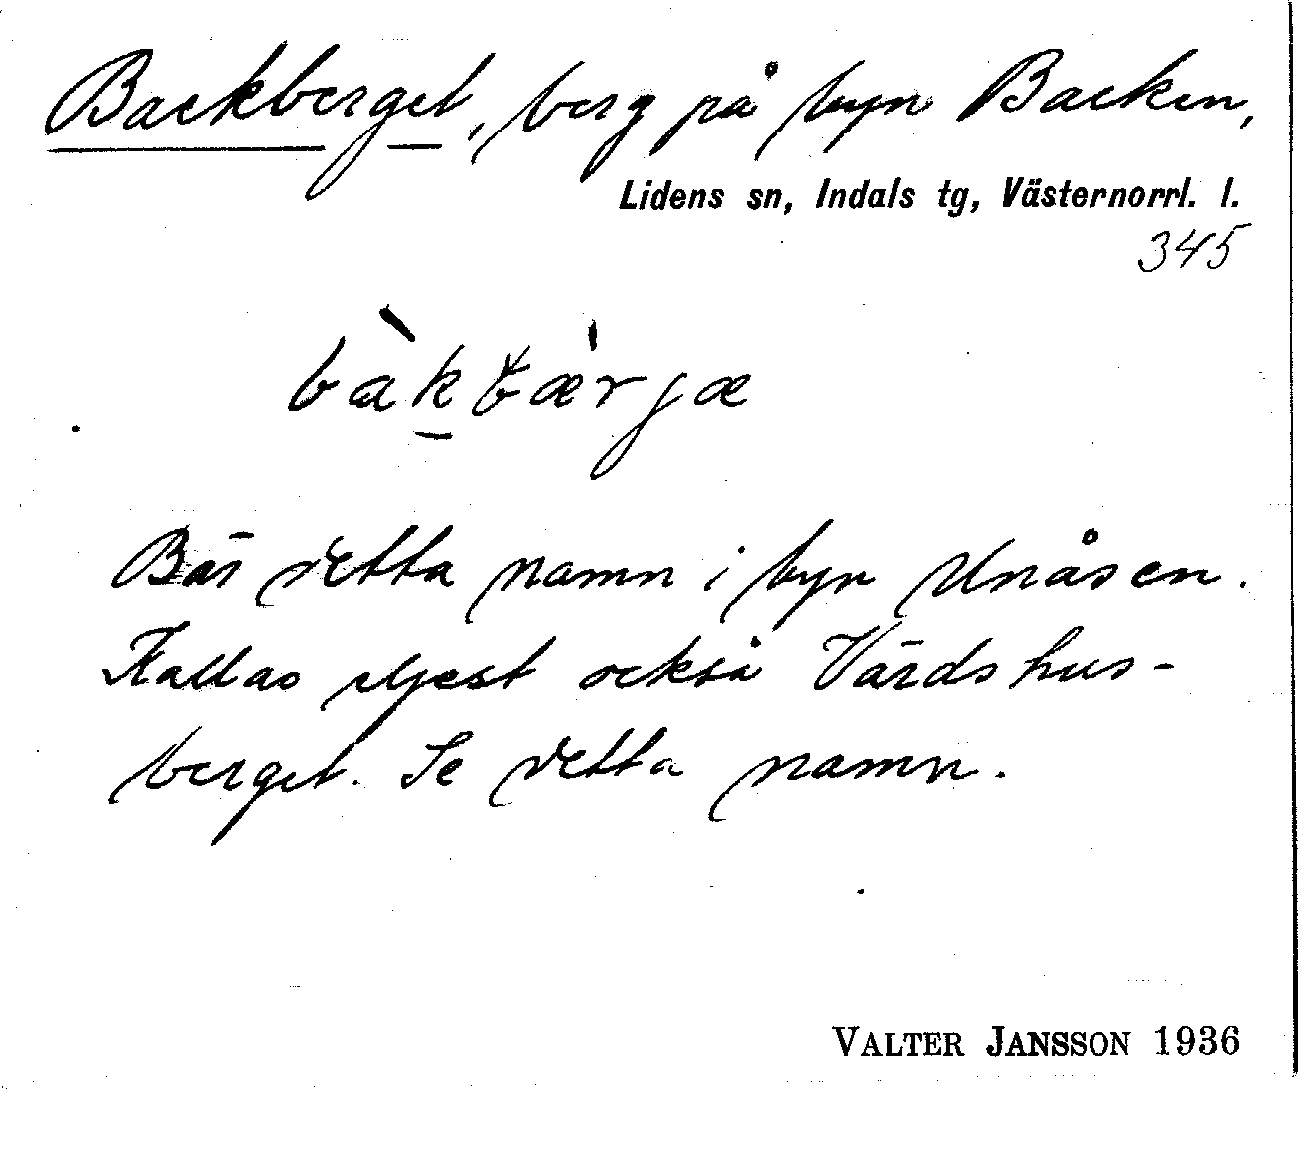 Backberget, berg på byn Backen,
Lidens sn, Indals tg, Västernorrl. l.
345
bàkbæ̀rjæ
Bär detta namn i byn Unåsen.
Kallas eljest också Värdshus-
berget. Se detta namn.
VALTER JANSSON 1936